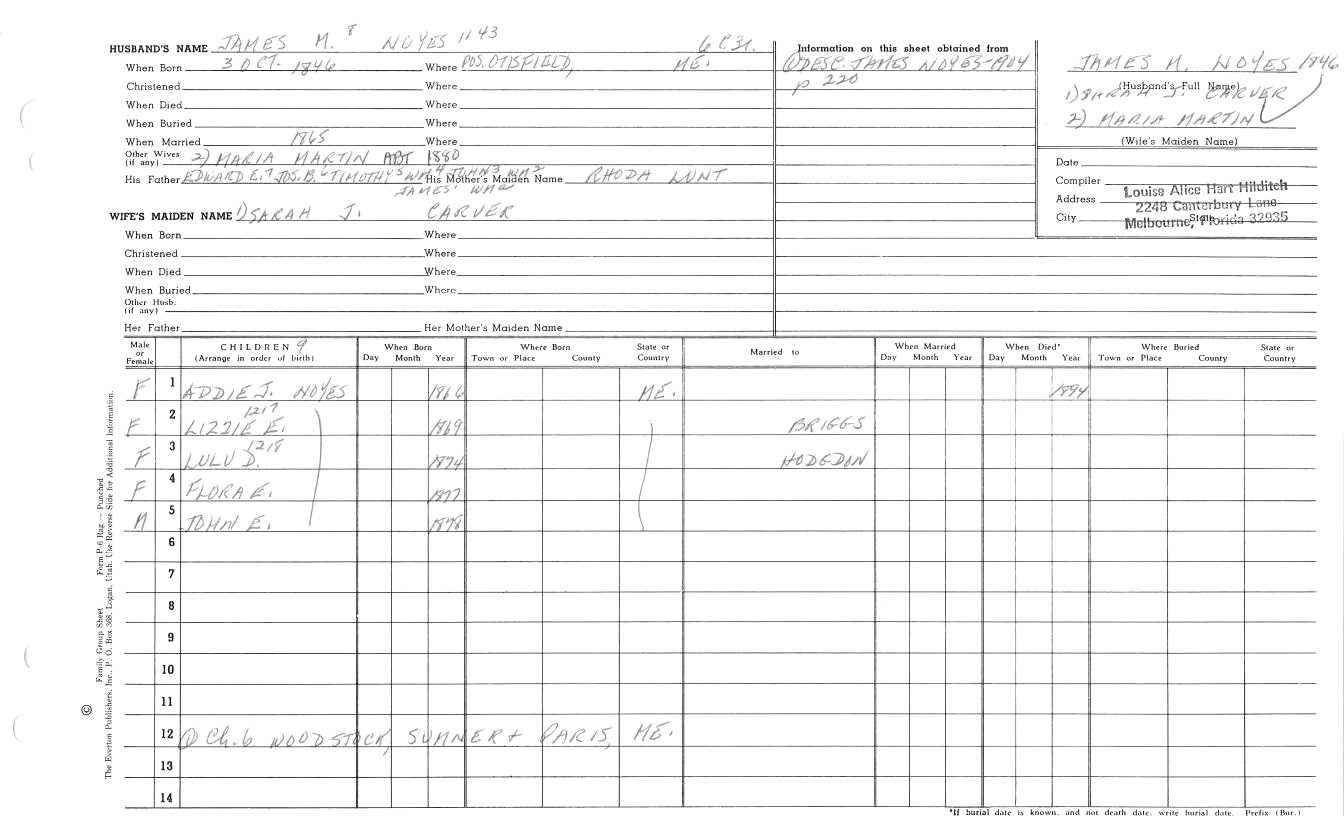 HUSBAND'S NAME JAMES M. 8 NOYES 1143 6 Ch.
When Born 3 OCT. 1846 Where POS. OTISFIELD, ME.
Christened Where
When Died Where
When Buried Where
When Married 1865 Where
Other Wives (if any) 2) MARIA MARTIN ABT 1880
His Father EDWARD E.7 JOS. B.6 TIMOTHY5 WM4 JOHN3 WM2 His Mother's Maiden Name RHODA LUNT
JAMES1 WMa
WIFE'S MAIDEN NAME 1) SARAH J. CARVER
When Born Where
Christened Where
When Died Where
When Buried Where
Other Husb. (if any)
Her Father Her Mother's Maiden Name
Information on this sheet obtained from
① DESC. JAMES NOYES-1904
p 220
JAMES M. NOYES 1846
(Husband's Full Name)
1) SARAH J. CARVER
2) MARIA MARTIN
(Wife's Maiden Name)
Date
Compiler
Address
City State
Louise Alice Hart Hilditch
2248 Canterbury Lane
Melbourne, Florida 32935
Male or Female CHILDREN 9 (Arrange in order of birth) When Born Day Month Year Where Born Town or Place County State or Country Married to When Married Day Month Year When Died* Day Month Year Where Buried Town or Place County State or Country
F 1 ADDIE J. NOYES 1866 ME. 1894
F 2 LIZZIE E. 1217 1869 BRIGGS
F 3 LULU D. 1218 1874 HODGDON
F 4 FLORA E. 1877
M 5 JOHN E. 1878
6
7
8
9
10
11
12 ① Ch. b WOODSTOCK, SUMNER + PARIS, ME.
13
14
*If burial date is known, and not death date, write burial date. Prefix (Bur.)
© Family Group Sheet Form P-6 Rag — Punched
The Everton Publishers, Inc., P. O. Box 368, Logan, Utah. Use Reverse Side for Additional Information.